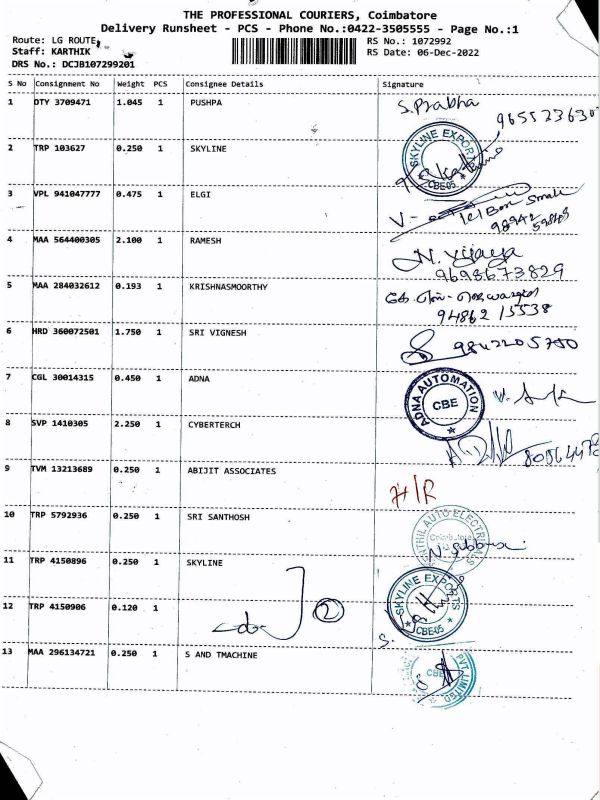 THE PROFESSIONAL COURIERS, Coimbatore
Delivery Runsheet - PCS - Phone No.:0422-3505555 - Page No.:1
Route: LG ROUTE,
RS No.: 1072992
Staff: KARTHIK
RS Date: 06-Dec-2022
DRS No.: DCJB107299201
S No Consignment No Weight PCS Consignee Details Signature
1 DTY 3709471 1.045 1 PUSHPA S.Prabha
SKYLINE EXPORTS
CBE-05
2 TRP 103627 0.250 1 SKYLINE
3 VPL 941047777 0.475 1 ELGI
4 MAA 564400305 2.100 1 RAMESH N. Vijaya
9698673829
5 MAA 284032612 0.193 1 KRISHNASMOORTHY
94862 15538
6 HRD 360072501 1.750 1 SRI VIGNESH
7 CGL 30014315 0.450 1 ADNA
ADNA AUTOMATION
CBE
8 SVP 1410305 2.250 1 CYBERTERCH
9 TVM 13213689 0.250 1 ABIJIT ASSOCIATES
H/R
10 TRP 5792936 0.250 1 SRI SANTHOSH
AUTO ELECTRICALS
Coimbatore
11 TRP 4150896 0.250 1 SKYLINE
SKYLINE EXPORTS
CBE-05
12 TRP 4150906 0.120 1
2
13 MAA 296134721 0.250 1 S AND TMACHINE
PVT LIMITED